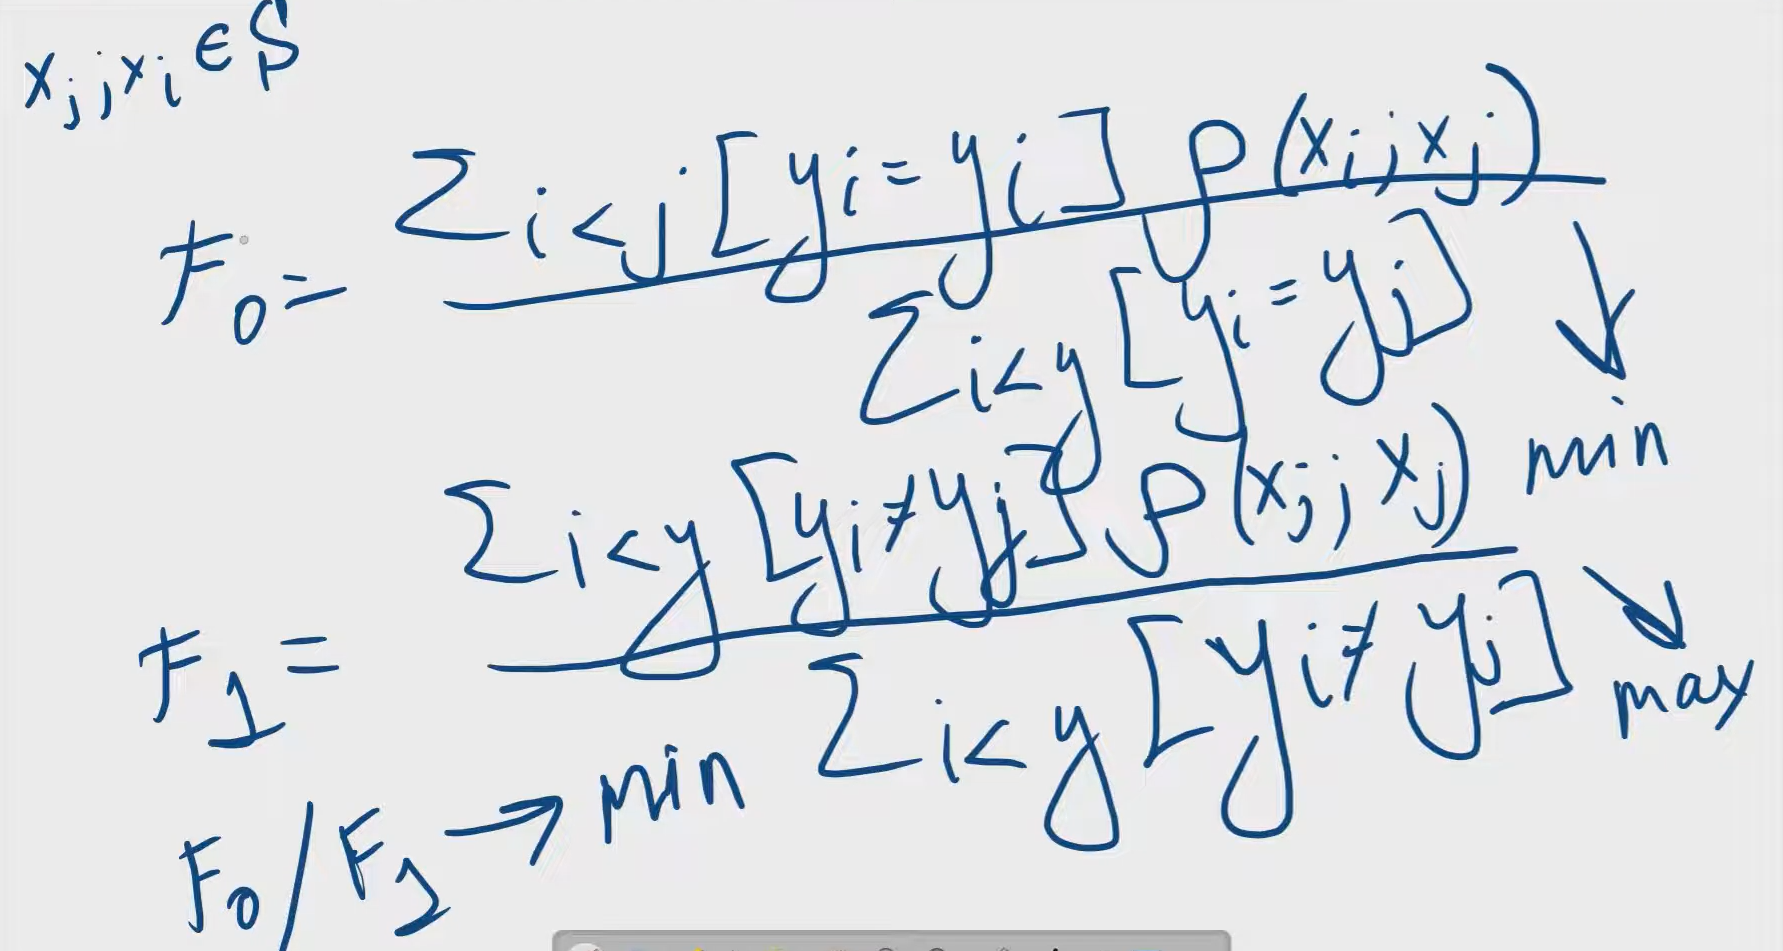 x_j, x_i ∈ S
F_0 = Σ i<j [y_i = y_i] ρ(x_i, x_j)
Σ i<y [y_i = y_j] ↓ min
F_1 = Σ i<y [y_i ≠ y_j] ρ(x_j, x_j)
Σ i<y [y_i ≠ y_j] ↘ max
F_0 / F_1 → min